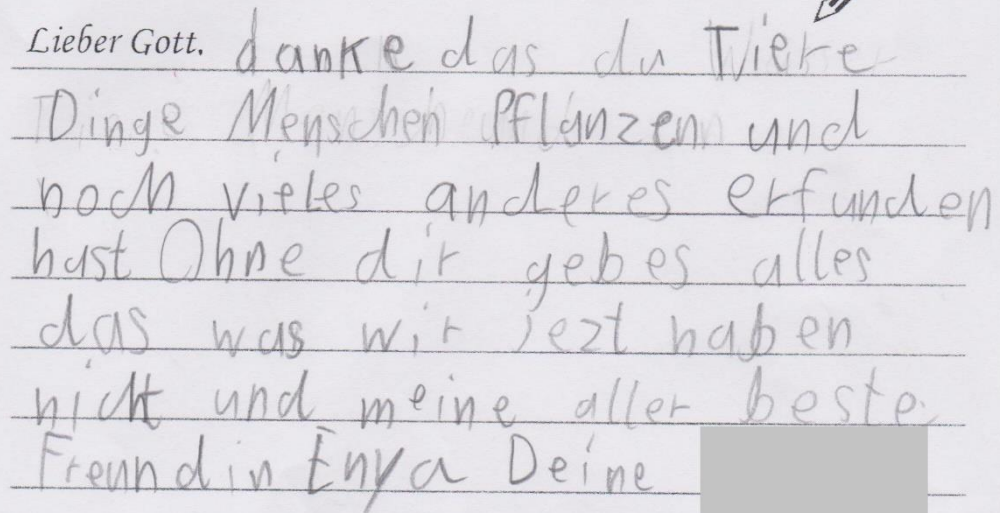 Lieber Gott. danke das du Tiere
Dinge Menschen Pflanzen und
noch vieles anderes erfunden
hast Ohne dir gebes alles
das was wir jezt haben
nicht und meine aller beste
Freundin Enya Deine